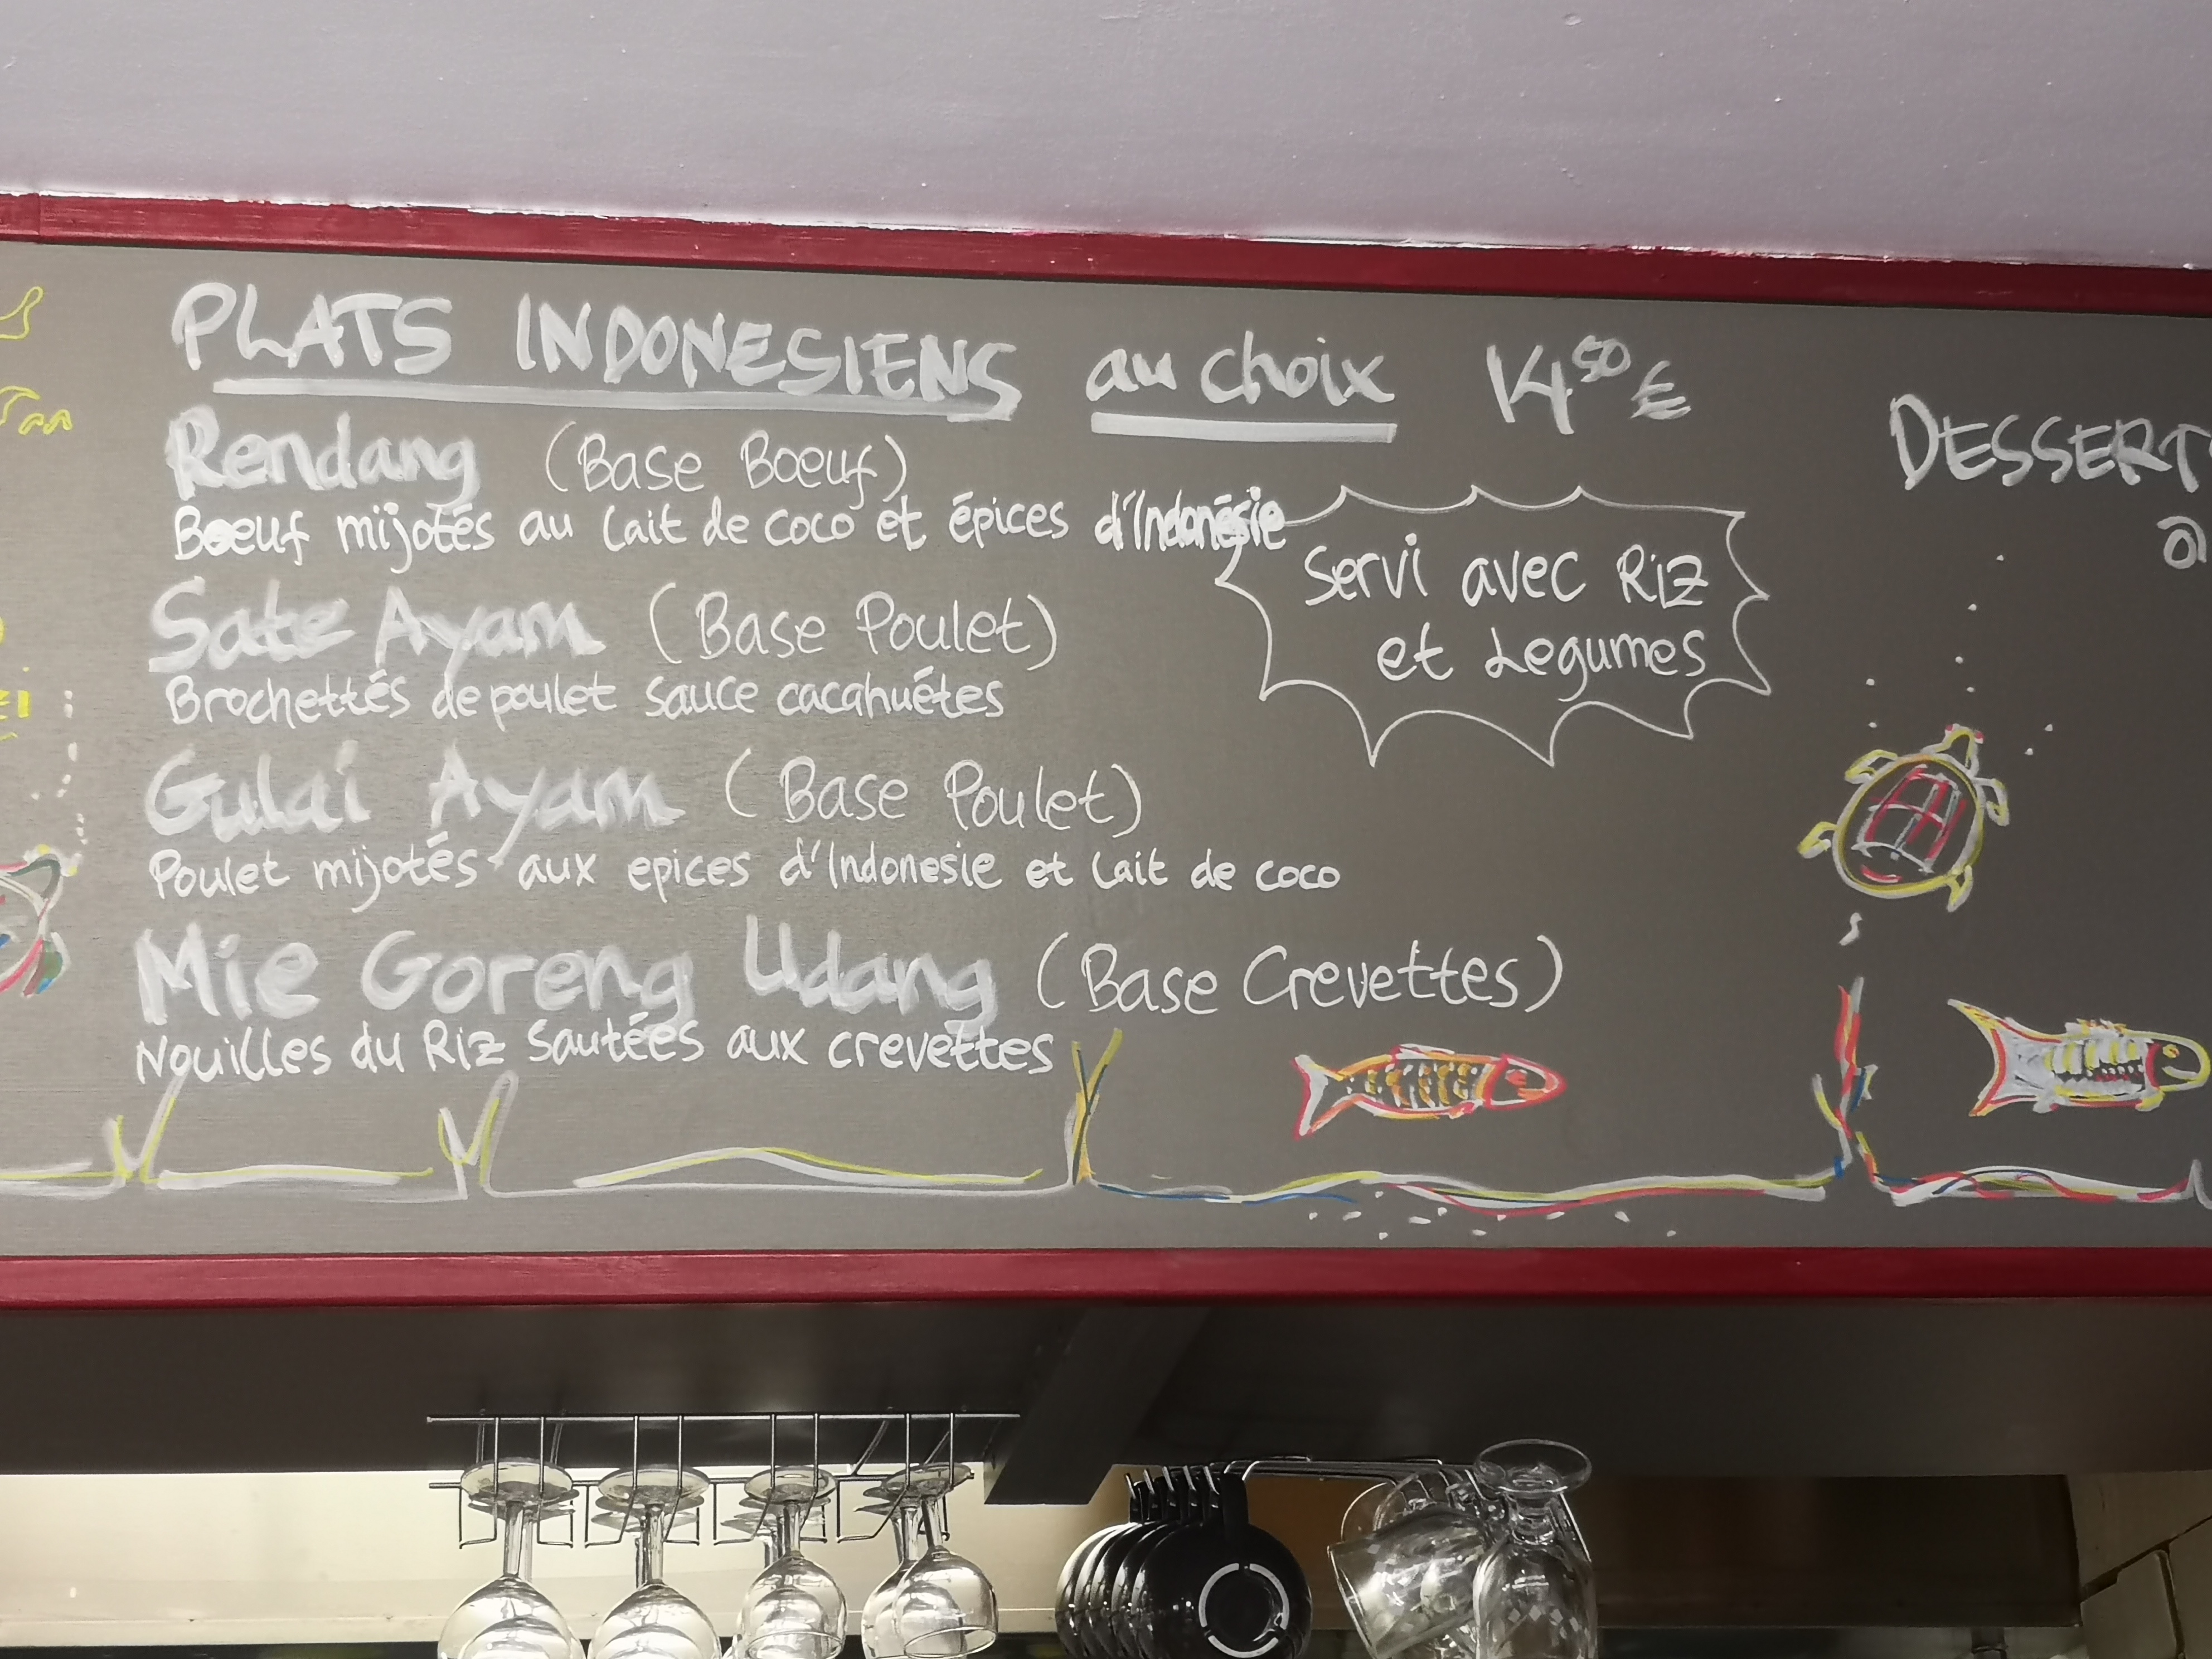 PLATS INDONESIENS au choix 14.50 €
Rendang (Base Boeuf)
Boeuf mijotés au lait de coco et épices d'Indonésie
Sate Ayam (Base Poulet)
Brochettés de poulet sauce cacahuétes
Gulai Ayam (Base Poulet)
Poulet mijotés aux epices d'Indonesie et lait de coco
Mie Goreng Udang (Base Crevettes)
Nouilles du Riz Sautées aux crevettes
Servi avec Riz
et Legumes
DESSERT